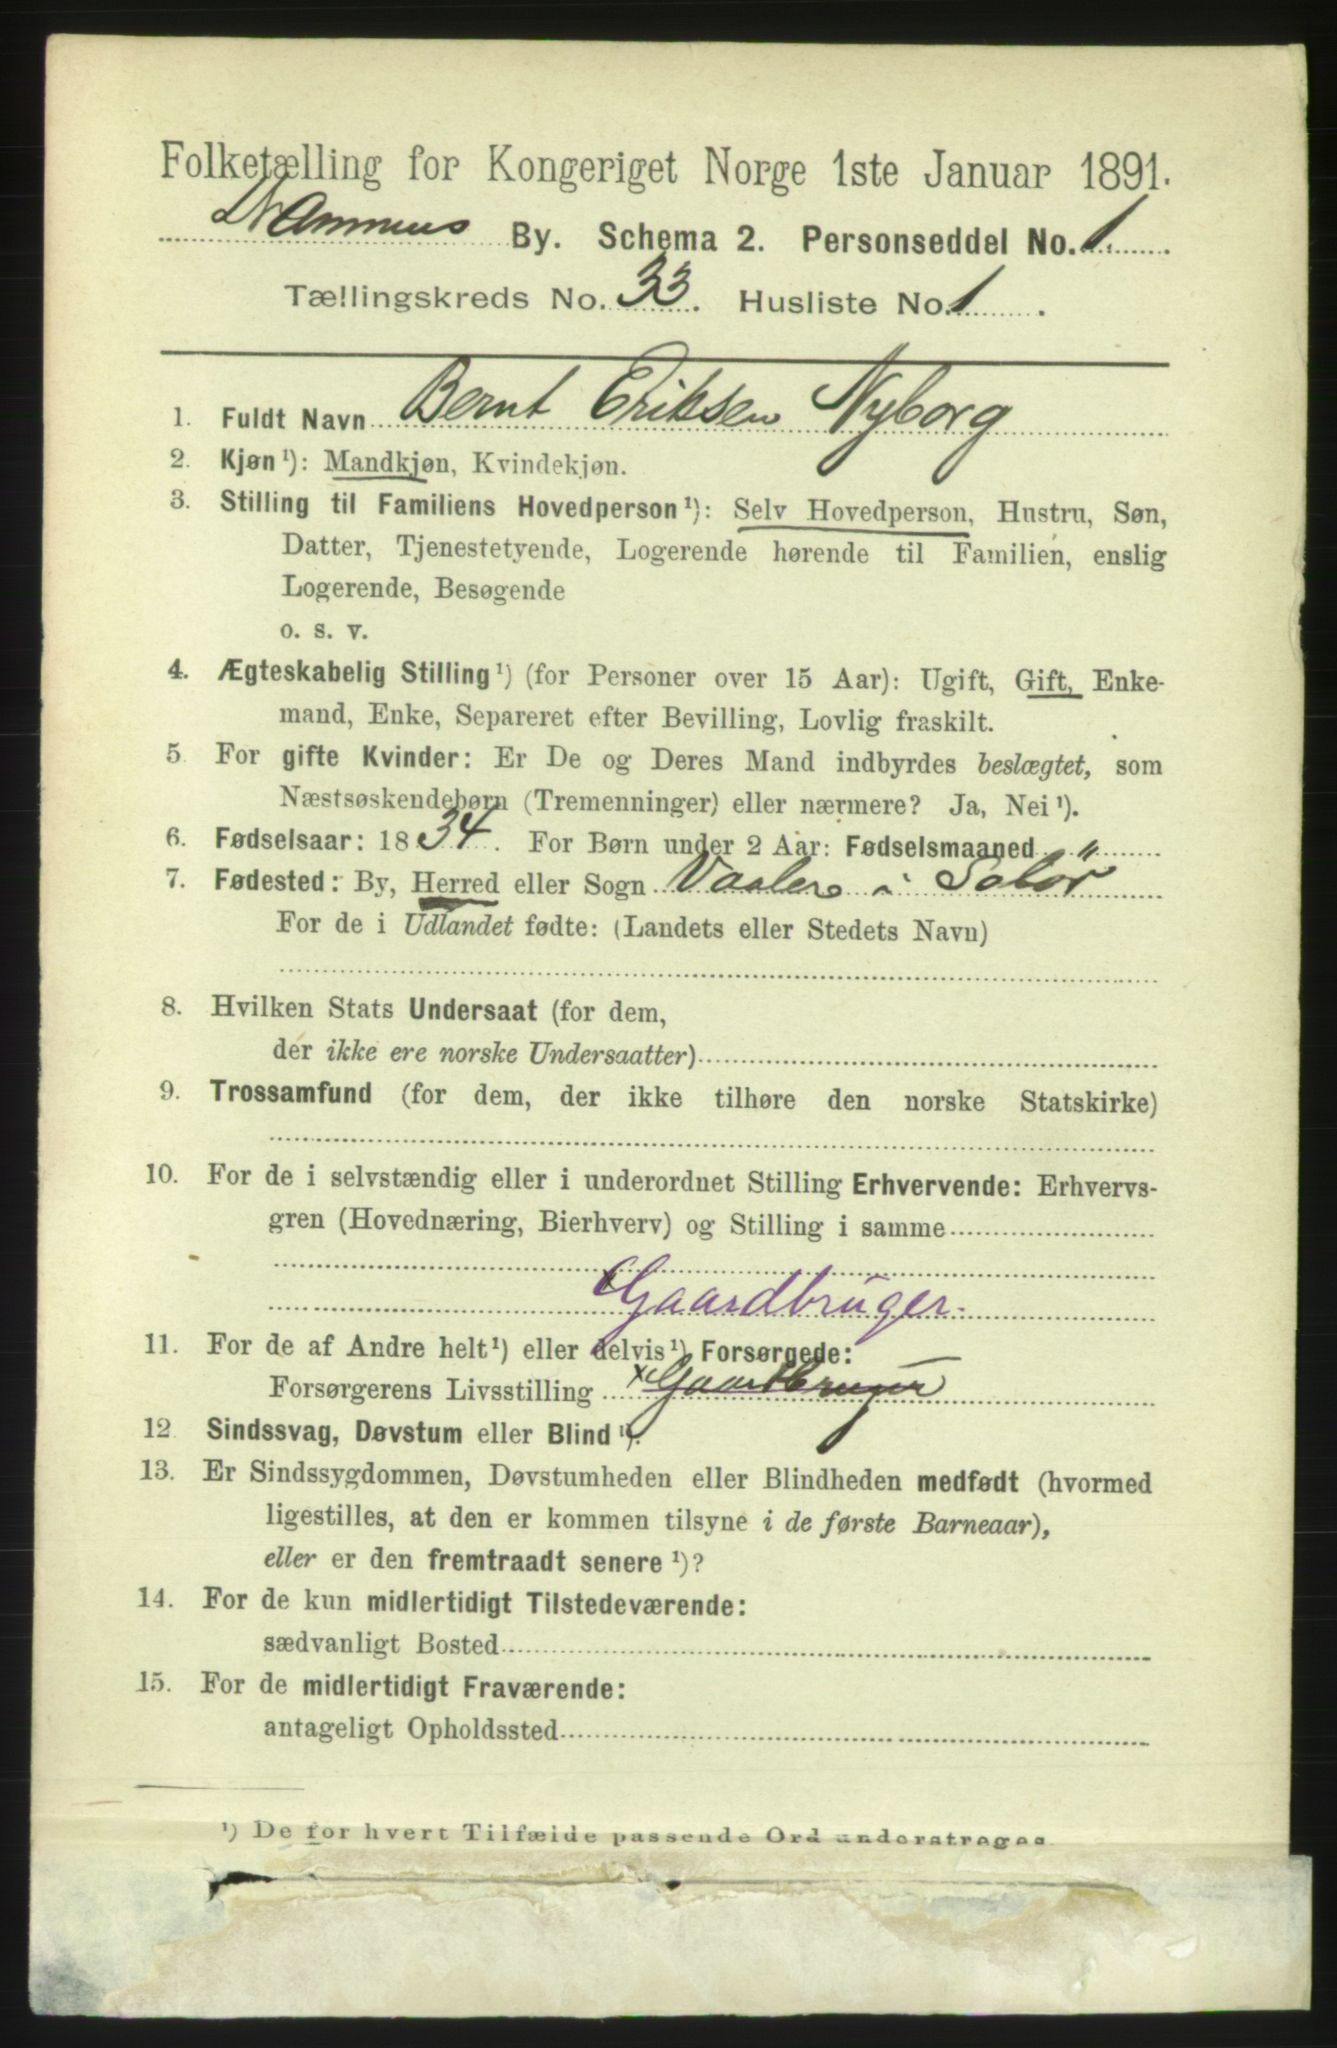 Folketælling for Kongeriget Norge 1ste Januar 1891.
Drammens By. Schema 2. Personseddel No. 1
Tællingskreds No. 33. Husliste No. 1.
1. Fuldt Navn Bernt Eriksen Nyborg
2. Kjøn¹): Mandkjøn, Kvindekjøn.
3. Stilling til Familiens Hovedperson¹): Selv Hovedperson, Hustru, Søn,
Datter, Tjenestetyende, Logerende hørende til Familien, enslig
Logerende, Besøgende
o. s. v.
4. Ægteskabelig Stilling¹) (for Personer over 15 Aar): Ugift, Gift, Enke-
mand, Enke, Separeret efter Bevilling, Lovlig fraskilt.
5 For gifte Kvinder: Er De og Deres Mand indbyrdes beslægtet, som
Næstsøskendebørn (Tremenninger) eller nærmere? Ja, Nei¹).
6. Fødselsaar: 1834. For Børn under 2 Aar: Fødselsmaaned "
7. Fødested: By, Herred eller Sogn Vaaler i Solør
For de i Udlandet fødte: (Landets eller Stedets Navn)
8. Hvilken Stats Undersaat (for dem,
der ikke ere norske Undersaatter)
9. Trossamfund (for dem, der ikke tilhøre den norske Statskirke)
10. For de i selvstændig eller i underordnet Stilling Erhvervende: Erhvervs-
gren (Hovednæring, Bierhverv) og Stilling i samme
x Gaardbruger.
11. For de af Andre helt¹) eller delvis¹) Forsørgede:
Forsørgerens Livsstilling x Gaardbruger
12 Sindssvag, Døvstum eller Blind¹).
13. Er Sindssygdommen, Døvstumheden eller Blindheden medfødt (hvormed
ligestilles, at den er kommen tilsyne i de første Barneaar),
eller er den fremtraadt senere¹)?
14. For de kun midlertidigt Tilstedeværende:
sædvanligt Bosted
15. For de midlertidigt Fraværende:
antageligt Opholdssted
¹) De for hvert Tilfælde passende Ord understreges